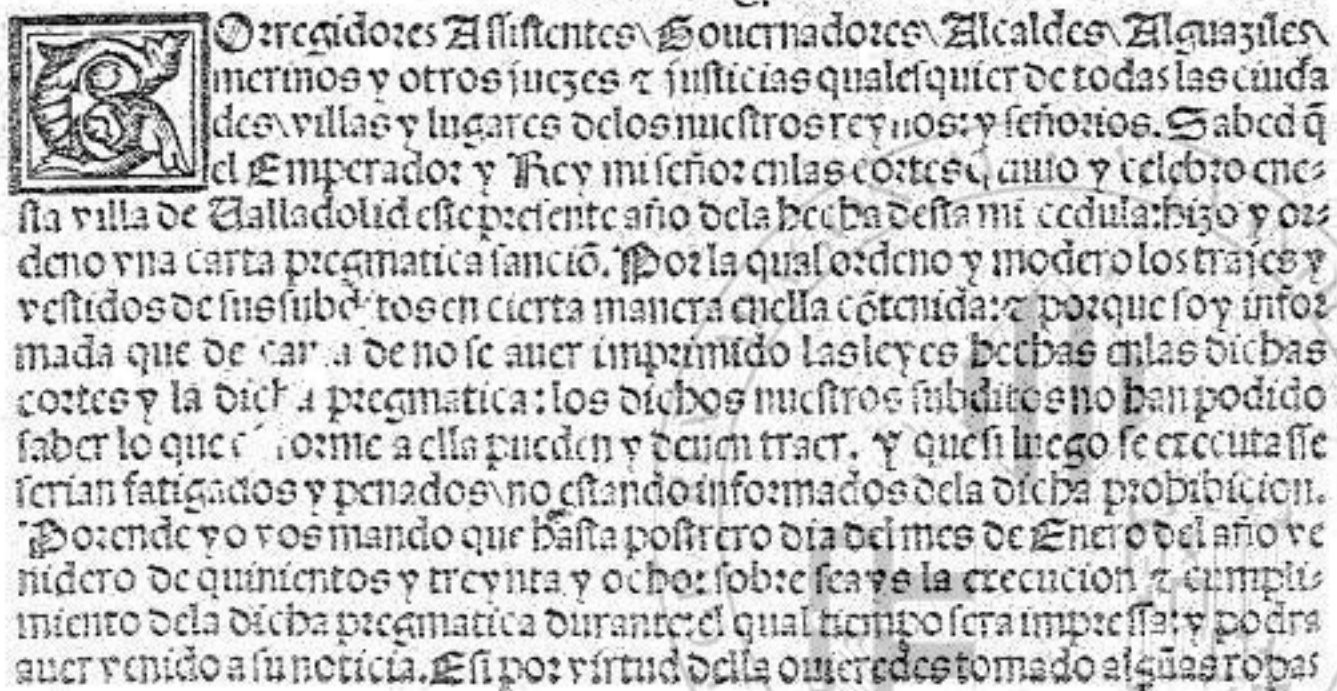 COrregidores Assistentes\ Gouernadores\ Alcaldes\ Alguaziles\
merinos y otros juezes ⁊ justicias qualesquier de todas las ciuda
des\ villas y lugares delos nuestros reynos: y señorios. Sabed q̃
el Emperador y Rey mi señor enlas cortes q̃ tuuo y celebro ene⸗
sta villa de Ualladolid este presente año dela hecha desta mi cedula: hizo y or⸗
deno vna carta pregmatica sanciõ. Por la qual ordeno y modero los trajes y
vestidos de sus subditos en cierta manera enella cõtenida: ⁊ porque soy infor
mada que de de no se auer imprimido las leyes hechas enlas dichas
cortes y la dicha pregmatica: los dichos nuestros subditos no han podido
saber lo que a ella pueden y deuen traer. Y que si luego se executasse
serian fatigados y penados\ no estando informados dela dicha prohibicion.
Porende yo vos mando que hasta postrero dia del mes de Enero del año ve
nidero de quinientos y treynta y ocho: sobre seays la execucion ⁊ cumpli⸗
miento dela dicha pregmatica durante: el qual tiempo sera impressa: y podra
auer venido a su noticia. E si por virtud della ouieredes tomado algũas ropas